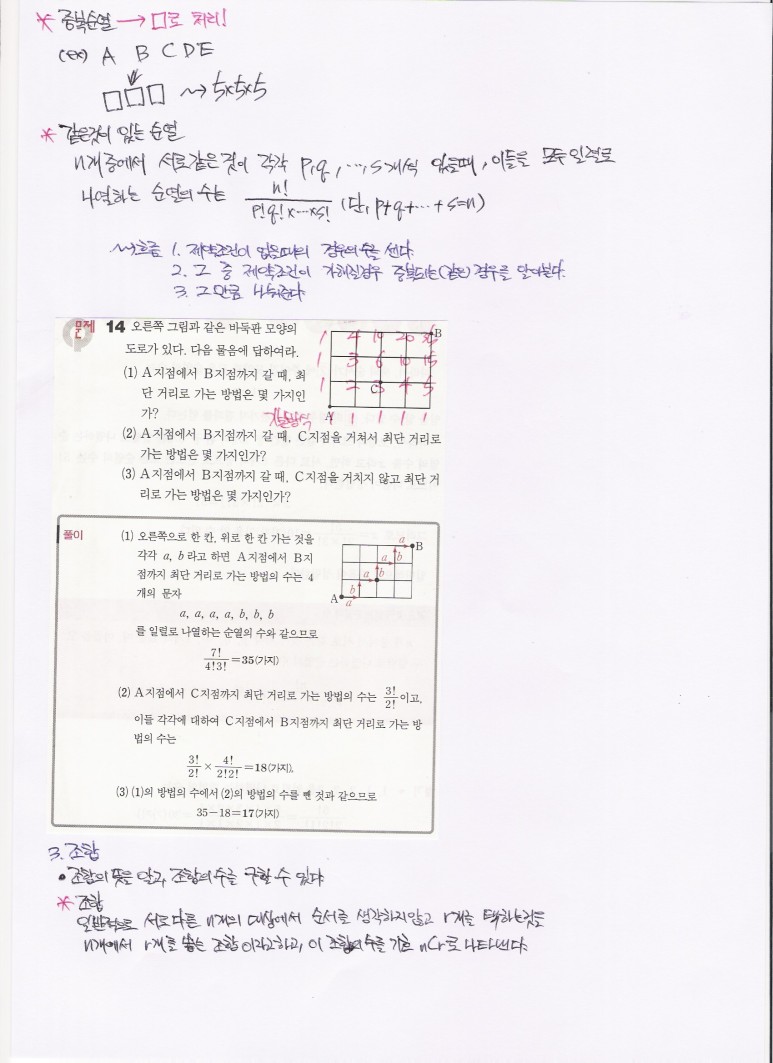 * 중복순열 → □로 처리!
(ex) A B C D E
□□□ ~> 5×5×5
* 같은것이 있는 순열
n개 중에서 서로 같은 것이 각각 p, q, …, s개씩 있을때, 이들을 모두 일렬로
나열하는 순열의 수는 n!/p!q!×…×s! (단, p+q+…+s=n)
~>흐름 1. 제약조건이 없을때의 경우의수를 센다.
2. 그 중 제약조건이 가해질경우 중복되는(같은) 경우를 알아본다.
3. 그만큼 나눠준다
문제 14 오른쪽 그림과 같은 바둑판 모양의
도로가 있다. 다음 물음에 답하여라.
(1) A지점에서 B지점까지 갈 때, 최
단 거리로 가는 방법은 몇 가지인
가?
1 4 10 20 35 B
1 3 6 10 15
1 2 C3 4 5
A 1 1 1 1 1
(2) A지점에서 B지점까지 갈 때, C지점을 거쳐서 최단 거리로
가는 방법은 몇 가지인가?
(3) A지점에서 B지점까지 갈 때, C지점을 거치지 않고 최단 거
리로 가는 방법은 몇 가지인가?
풀이
(1) 오른쪽으로 한 칸, 위로 한 칸 가는 것을
각각 a, b라고 하면 A지점에서 B지
점까지 최단 거리로 가는 방법의 수는 4
개의 문자
a, a, a, a, b, b, b
를 일렬로 나열하는 순열의 수와 같으므로
7!/4!3!=35(가지)
a B
a b
a b
b
A a
(2) A지점에서 C지점까지 최단 거리로 가는 방법의 수는 3!/2!이고,
이들 각각에 대하여 C지점에서 B지점까지 최단 거리로 가는 방
법의 수는
3!/2!×4!/2!2!=18(가지).
(3) (1)의 방법의 수에서 (2)의 방법의 수를 뺀 것과 같으므로
35-18=17(가지)
3. 조합
• 조합의 뜻을 알고, 조합의 수를 구할 수 있다
* 조합
일반적으로 서로 다른 n개의 대상에서 순서를 생각하지않고 r개를 택하는것을
n개에서 r개를 뽑는 조합이라고하고, 이 조합의 수를 기호 nCr로 나타낸다.